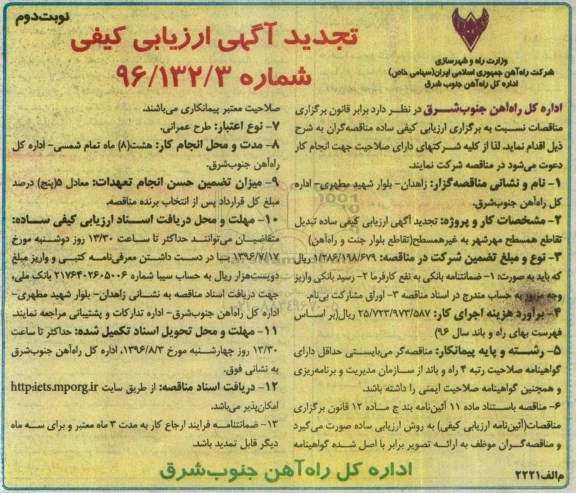 نوبت دوم
تجدید آگهی ارزیابی کیفی
شماره ۹۶/۱۳۲/۳
وزارت راه و شهرسازی
شرکت راه‌آهن جمهوری اسلامی ایران(سهامی خاص)
اداره کل راه‌آهن جنوب شرق
اداره کل راه‌آهن جنوب‌شرق در نظر دارد برابر قانون برگزاری
مناقصات نسبت به برگزاری ارزیابی کیفی ساده مناقصه‌گران به شرح
ذیل اقدام نماید. لذا از کلیه شرکتهای دارای صلاحیت جهت انجام کار
دعوت می‌شود در مناقصه شرکت نمایند.
۱- نام و نشانی مناقصه‌گزار: زاهدان- بلوار شهید مطهری- اداره
کل راه‌آهن جنوب‌شرق.
۲- مشخصات کار و پروژه: تجدید آگهی ارزیابی کیفی ساده تبدیل
تقاطع همسطح مهرشهر به غیرهمسطح(تقاطع بلوار جنت و راه‌آهن)
۳- نوع و مبلغ تضمین شرکت در مناقصه: ۱/۲۸۶/۱۹۸/۶۷۹ ریال
که باید به صورت: ۱- ضمانتنامه بانکی به نفع کارفرما ۲- رسید بانکی واریز
وجه مزبور به حساب مندرج در اسناد مناقصه ۳- اوراق مشارکت بی‌نام.
۴- برآورد هزینه اجرای کار: ۲۵/۷۲۳/۹۷۳/۵۸۷ ریال(بر اساس
فهرست بهای راه و باند سال ۹۶)
۵- رشته و پایه پیمانکار: مناقصه‌گر می‌بایستی حداقل دارای
گواهینامه صلاحیت رتبه ۴ راه و باند از سازمان مدیریت و برنامه‌ریزی
و همچنین گواهینامه صلاحیت ایمنی را داشته باشد.
۶- مناقصه باستناد ماده ۱۱ آئین‌نامه بند ج ماده ۱۲ قانون برگزاری
مناقصات(آئین‌نامه ارزیابی کیفی) به روش ارزیابی ساده صورت می‌گیرد
و مناقصه‌گران موظف به ارائه تصویر برابر با اصل شده گواهینامه
صلاحیت معتبر پیمانکاری می‌باشند.
۷- نوع اعتبار: طرح عمرانی.
۸- مدت و محل انجام کار: هشت(۸) ماه تمام شمسی- اداره کل
راه‌آهن جنوب‌شرق.
۹- میزان تضمین حسن انجام تعهدات: معادل ۵(پنج) درصد
مبلغ کل قرارداد پس از انتخاب برنده مناقصه.
۱۰- مهلت و محل دریافت اسناد ارزیابی کیفی ساده:
متقاضیان می‌توانند حداکثر تا ساعت ۱۳/۳۰ روز دوشنبه مورخ
۱۳۹۶/۷/۱۷ با در دست داشتن معرفی‌نامه کتبی و واریز مبلغ
دویست‌هزار ریال به حساب سیبا شماره ۲۱۷۶۴۰۲۶۰۵۰۰۶ بانک ملی،
جهت دریافت اسناد مناقصه به نشانی زاهدان- بلوار شهید مطهری-
اداره کل راه‌آهن جنوب‌شرق- اداره تدارکات و پشتیبانی مراجعه نمایند.
۱۱- مهلت و محل تحویل اسناد تکمیل شده: حداکثر تا ساعت
۱۳/۳۰ روز چهارشنبه مورخ ۱۳۹۶/۸/۳، اداره کل راه‌آهن جنوب‌شرق
به نشانی فوق.
۱۲- دریافت اسناد مناقصه: از طریق سایت http:iets.mporg.ir
امکان‌پذیر می‌باشد.
۱۳- ضمانتنامه فرایند ارجاع کار به مدت ۳ ماه معتبر و برای سه ماه
دیگر قابل تمدید باشد.
م‌الف ۲۲۲۱
اداره کل راه‌آهن جنوب‌شرق